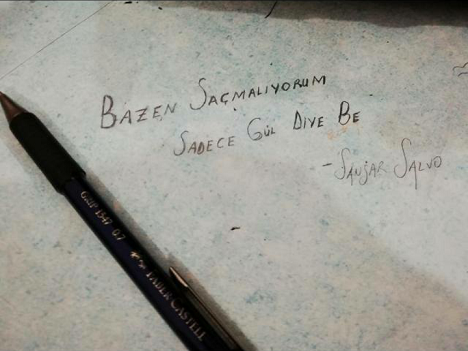 BAZEN SAÇMALIYORUM
SADECE GÜL DIYE BE
- SANJAR SALVO
GRIP 1347 0.7
FABER-CASTELL